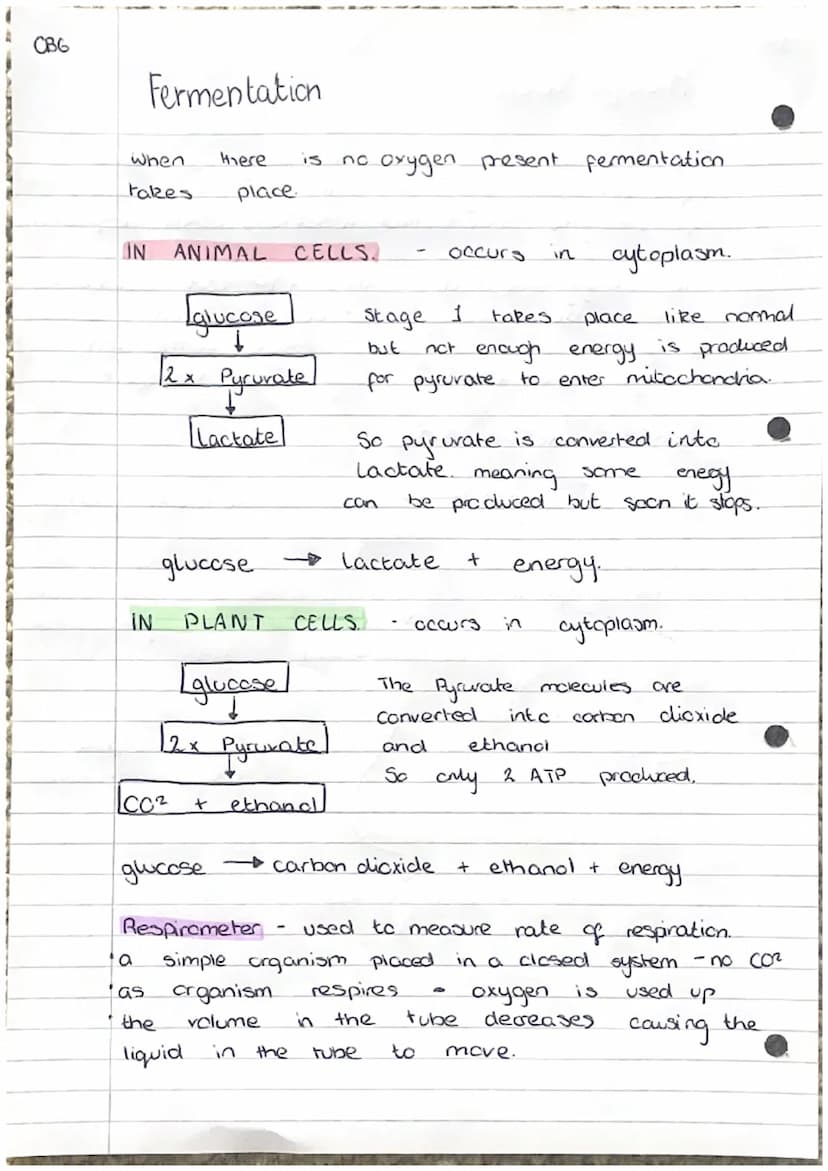 CB6
Fermentation
when there is no oxygen present fermentation
takes place.
IN ANIMAL CELLS. - occurs in cytoplasm.
glucose
2 x Pyruvate
Lactate
Stage 1 takes place like normal
but not enough energy is produced
for pyruvate to enter mitochondria.
So pyruvate is converted into
Lactate. meaning some enegy
can be produced but soon it stops.
glucose → Lactate + energy.
IN PLANT CELLS. - occurs in cytoplasm.
glucose
2 x Pyruvate
CO² + ethanol
The Pyruvate molecules are
converted into carbon dioxide
and ethanol
So only 2 ATP produced.
glucose → carbon dioxide + ethanol + energy
Respirometer - used to measure rate of respiration.
• a simple organism placed in a closed system - no CO²
• as organism respires - oxygen is used up
• the volume in the tube decreases causing the
liquid in the tube to move.